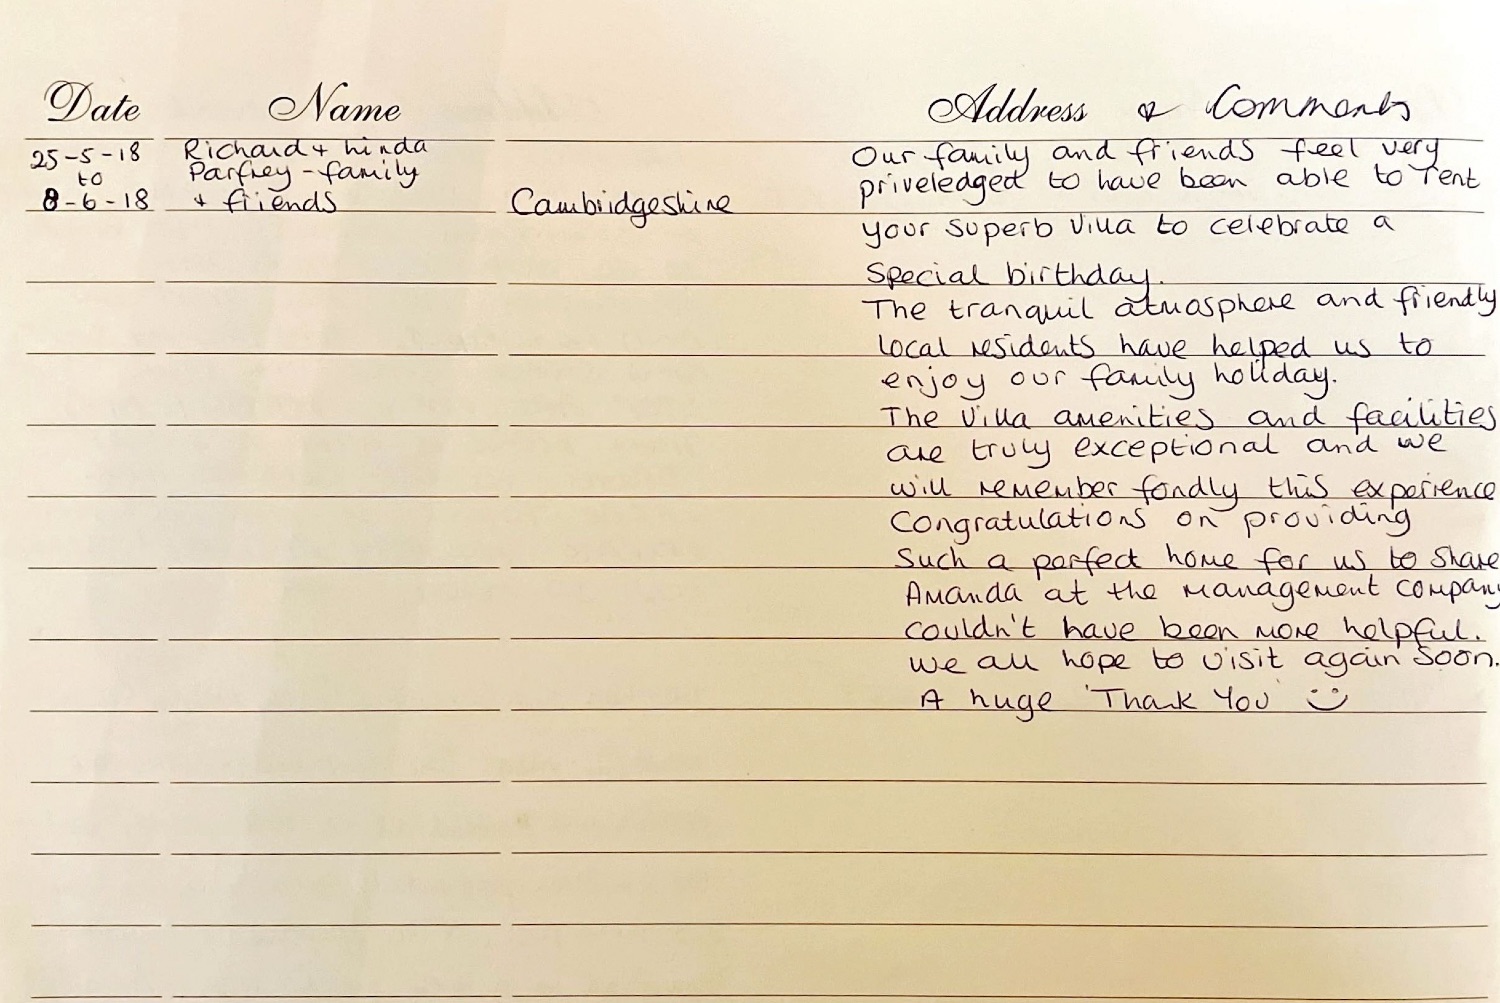 Date Name Address & Comments
25-5-18 Richard + Linda
to Parfrey - family
8-6-18 + friends Cambridgeshire
Our family and friends feel very
priveledged to have been able to rent
your superb villa to celebrate a
special birthday.
The tranquil atmosphere and friendly
local residents have helped us to
enjoy our family holiday.
The villa amenities and facilities
are truly exceptional and we
will remember fondly this experience
Congratulations on providing
such a perfect home for us to share
Amanda at the management company
couldn't have been more helpful.
We all hope to visit again soon.
A huge 'Thank You'